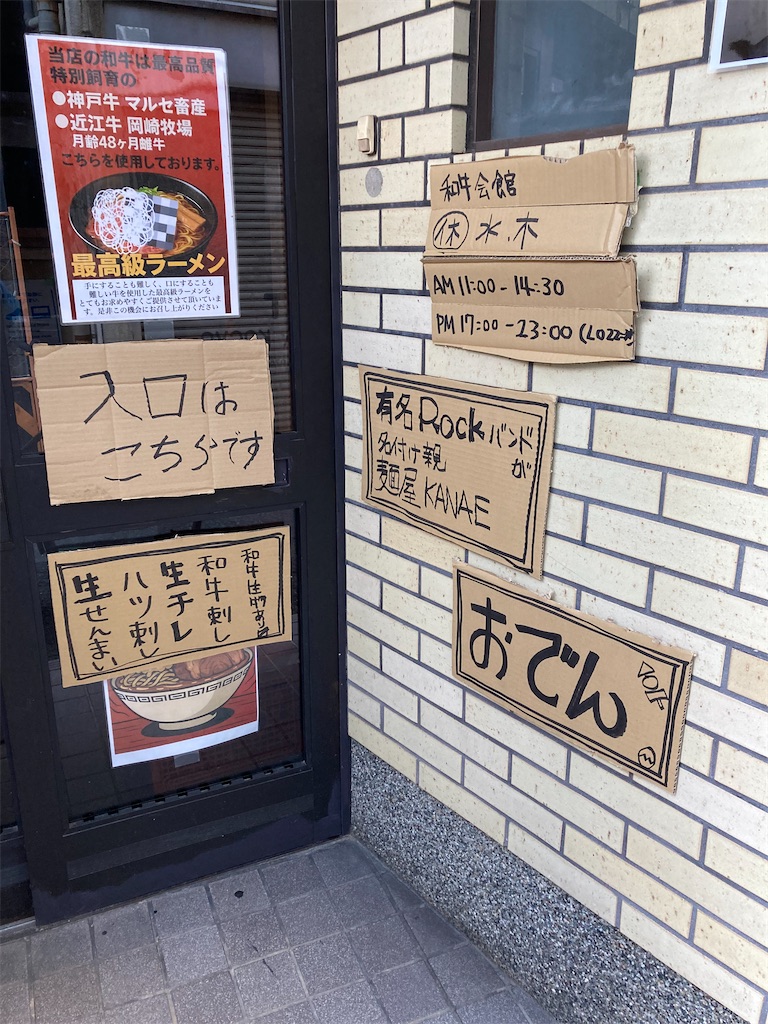 当店の和牛は最高品質
特別飼育の
●神戸牛 マルセ畜産
●近江牛 岡崎牧場
月齢48ヶ月雌牛
こちらを使用しております。
最高級ラーメン
手にすることも難しく、口にすることも
難しい牛を使用した最高級ラーメンを
とてもお求めやすくご提供させて頂いていま
す。是非この機会にお召し上がりください
入口は
こちらです
和牛生物あり
和牛刺し
生チレ
ハツ刺し
生せんまい
和牛会館
休 水.木
AM 11:00 - 14:30
PM 17:00 - 23:00 (LO22:
有名Rockバンドが
名付け親
麺屋 KANAE
おでん